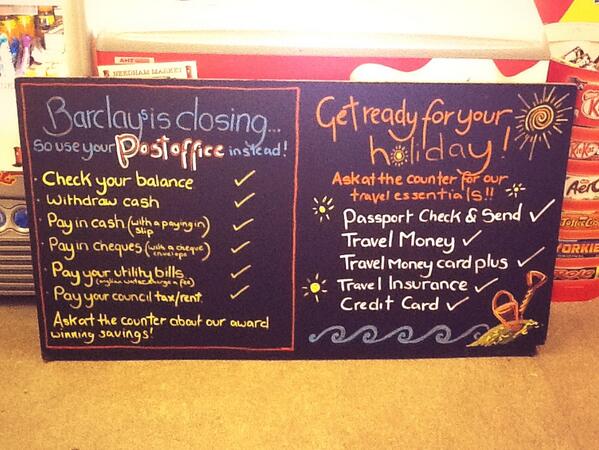 NEEDHAM MARKET
Barclays is closing...
so use your Post office instead!
Check your balance
Withdraw cash
Pay in cash (with a paying in slip)
Pay in cheques (with a cheque envelope)
Pay your utility bills
(anglian water charge a fee)
Pay your council tax/rent.
Ask at the counter about our award
winning savings!
Get ready for your
holiday!
Ask at the counter for our
travel essentials!!
Passport Check & Send
Travel Money
Travel Money card plus
Travel Insurance
Credit Card
KitKat
Aero
Toffee Crisp
YORKIE